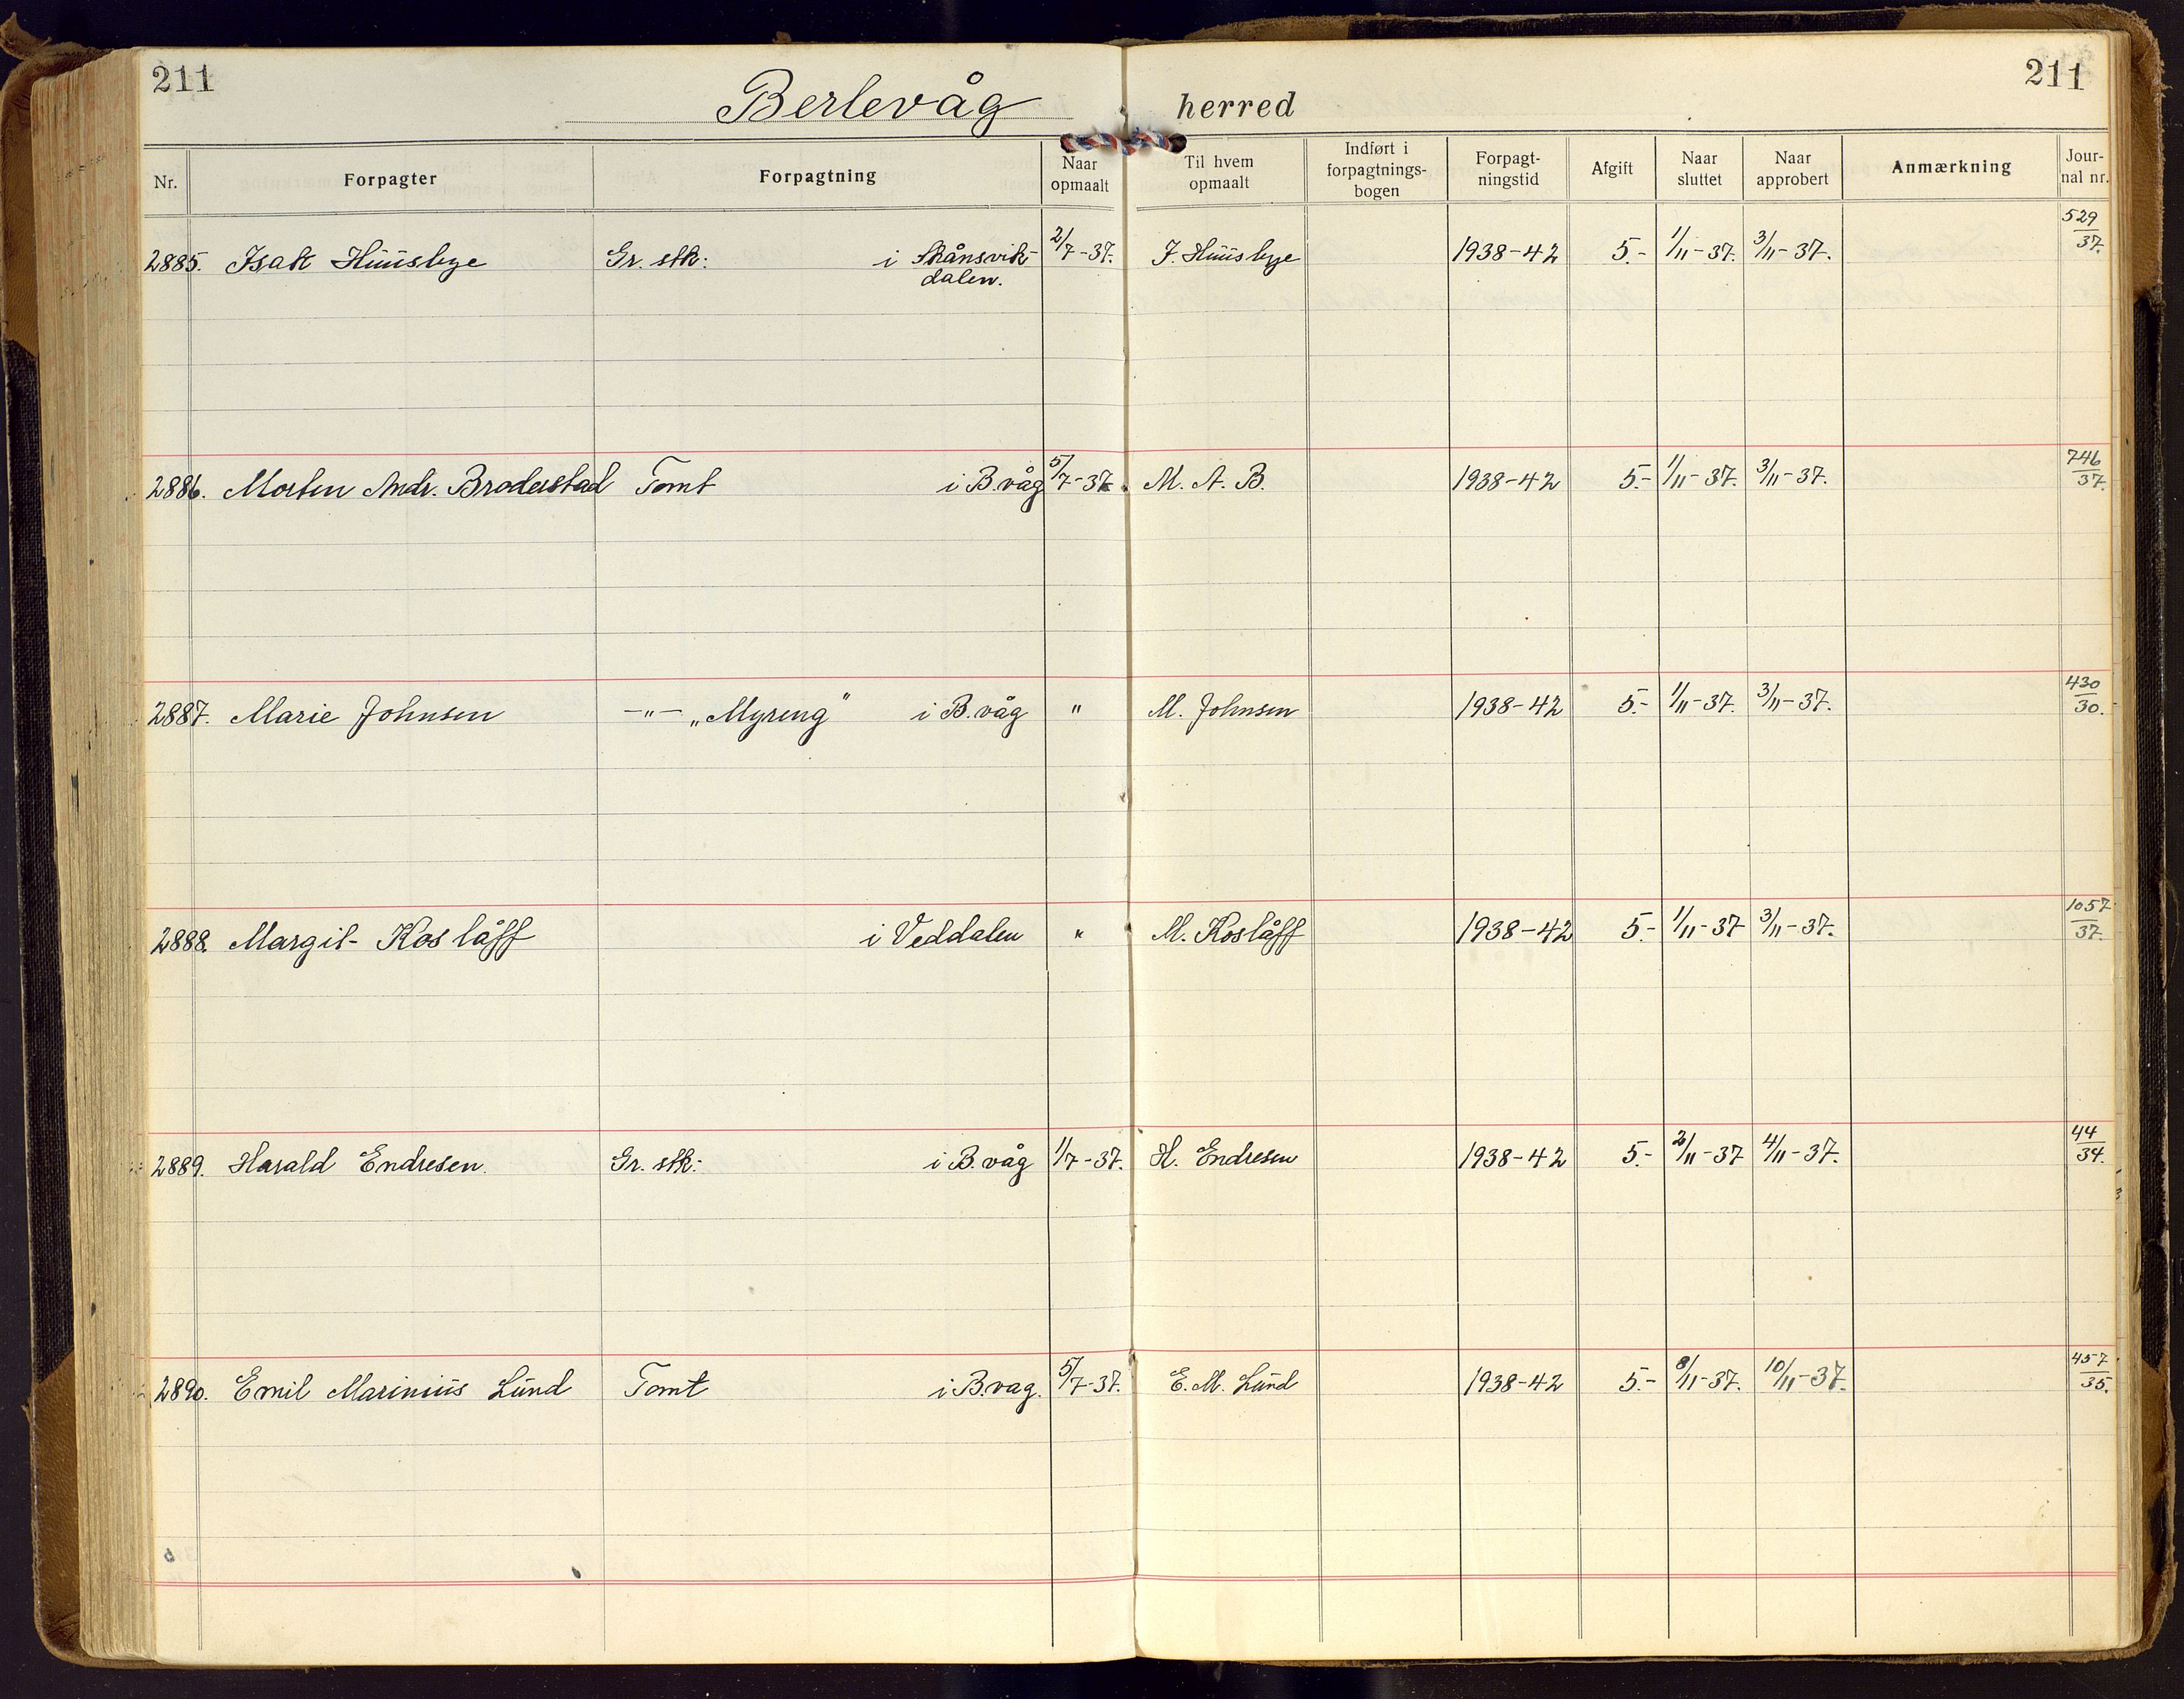 211
Berlevåg herred
211
Nr. Forpagter Forpagtning Naar opmaalt Til hvem opmaalt Indført i forpagtnings-bogen Forpagt-ningstid Afgift Naar sluttet Naar approbert Anmærkning Jour-nal nr.
2885. Isak Huusbye Gr. stk: i Skånsvik- 2/7-37. I. Huusbye 1938-42 5.- 1/11-37. 3/11-37. 529/37.
dalen.
2886. Morten Andr. Broderstad Tomt i B.våg 5/7-37. M. A. B. 1938-42 5.- 1/11-37. 3/11-37. 746/37.
2887. Marie Johnsen -"- „Myreng" i B.våg " M. Johnsen 1938-42 5.- 1/11-37. 3/11-37. 430/30.
2888. Margit Koslåff i Veddalen " M. Koslåff 1938-42 5.- 1/11-37 3/11-37. 1057/37.
2889. Harald Endresen. Gr. stk: i B.våg 1/7-37. H. Endresen 1938-42 5.- 2/11-37 4/11-37. 44/34.
2890. Emil Marinius Lund Tomt i B.vag. 5/7-37. E. M. Lund 1938-42 5.- 8/11-37. 10/11-37. 457/35.